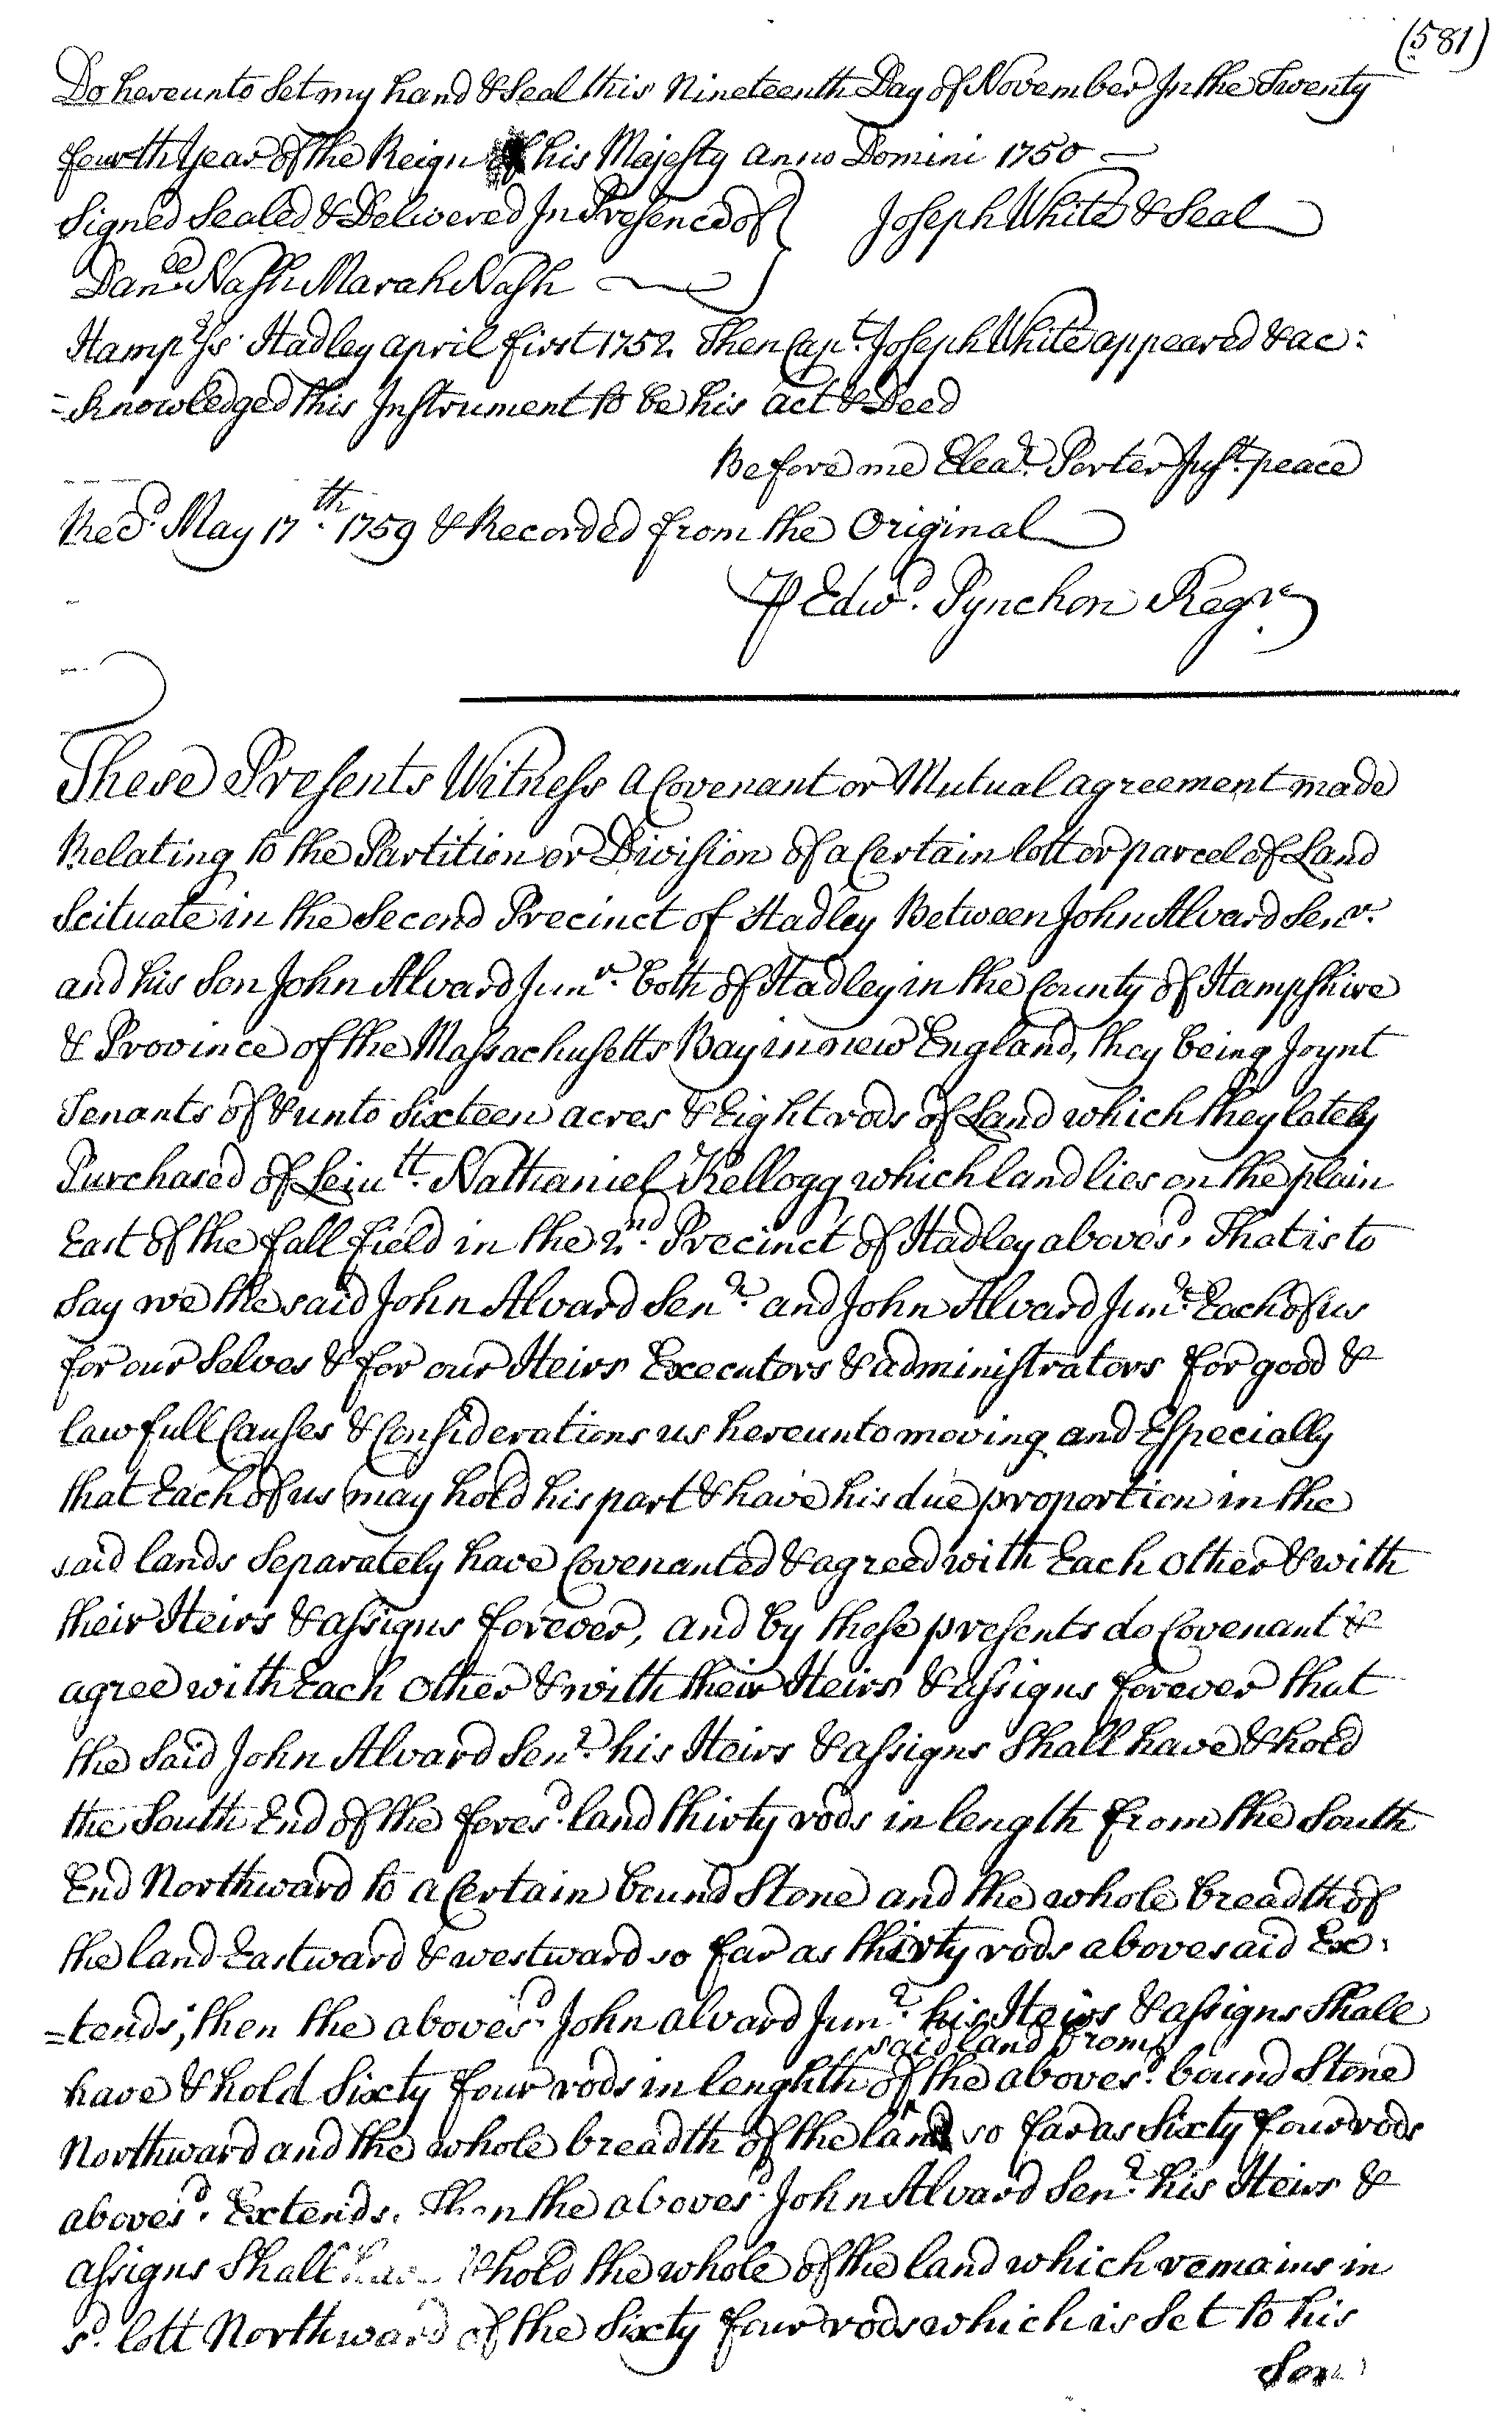 (581)
Do hereunto Set my hand & Seal this Nineteenth Day of November In the Twenty
fourth Year of the Reign of his Majesty anno Domini 1750
Signed Sealed & Delivered In Presence of } Joseph White & Seal
Danel. Nash Marah Nash
Hampr. Ss. Hadley april first 1752 Then Capt. Joseph White appeared & ac:
=knowledged this Instrument to be his act & Deed
Before me Eleazr. Porter Just. peace
Recd. May 17th. 1759 & Recorded from the Original
P Edwd. Pynchon Regr.
These Presents Witness a Covenant or Mutual agreement made
Relating to the Partition or Division of a Certain lott or parcel of Land
Scituate in the Second Precinct of Hadley Between John Alvard Senr.
and his Son John Alvard Junr. both of Hadley in the County of Hampshire
& Province of the Massachusetts Bay in new England, they being Joynt
Tenants of & unto Sixteen acres & Eight rods of Land which they lately
Purchased of Leiutt. Nathaniel Kellogg which land lies on the plain
East of the fall field in the 2nd. Precinct of Hadley abovesd. That is to
Say we the said John Alvard Senr. and John Alvard Junr. Each of us
for our Selves & for our Heirs Executors & administrators for good &
lawfull Causes & Considerations us hereunto moving and Especially
that Each of us may hold his part & have his due proportion in the
said lands Separately have Covenanted & agreed with Each Other & with
their Heirs & assigns forever, and by these presents do Covenant &
agree with Each Other & with their Heirs & assigns forever that
the Said John Alvard Senr. his Heirs & assigns Shall have & hold
the South End of the foresd. land thirty rods in length from the South
End Northward to a Certain bound Stone and the whole breadth of
the land Eastward & westward so far as thirty rods abovesaid Ex:
=tends; then the abovesd. John alvard Junr. his Heirs & assigns Shall
said land from
have & hold Sixty four rods in lenghth of the abovesd. bound Stone
Northward and the whole breadth of the land so far as Sixty four rods
abovesd. Extends. Then the abovesd. John Alvard Senr. his Heirs &
assigns Shall have & hold the whole of the land which remains in
sd. lott Northward of the Sixty four rods which is Set to his
Son